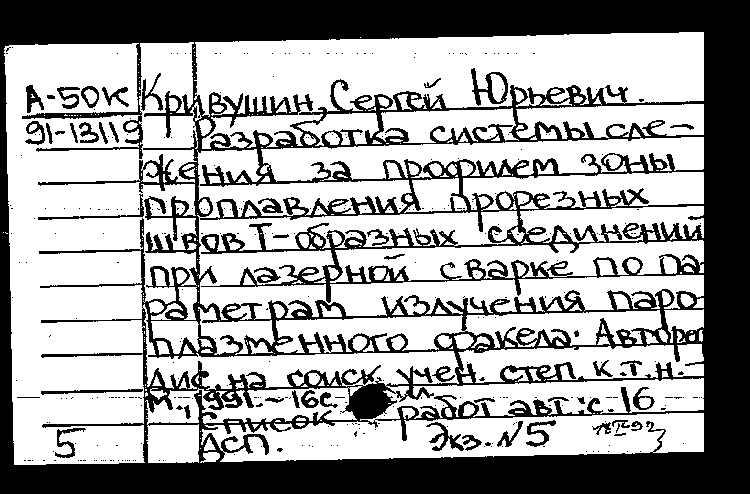 А-50К Кривушин, Сергей Юрьевич.
91-13119 Разработка системы сле-
жения за профилем зоны
проплавления прорезных
швов Т-образных соединений
при лазерной сварке по па-
раметрам излучения паро-
плазменного факела: Автореф
дис. на соиск. учен. степ. к.т.н.-
М., 1991.- 16с. ил.
Список работ авт.: с. 16.
ДСП. Экз. N 5
5